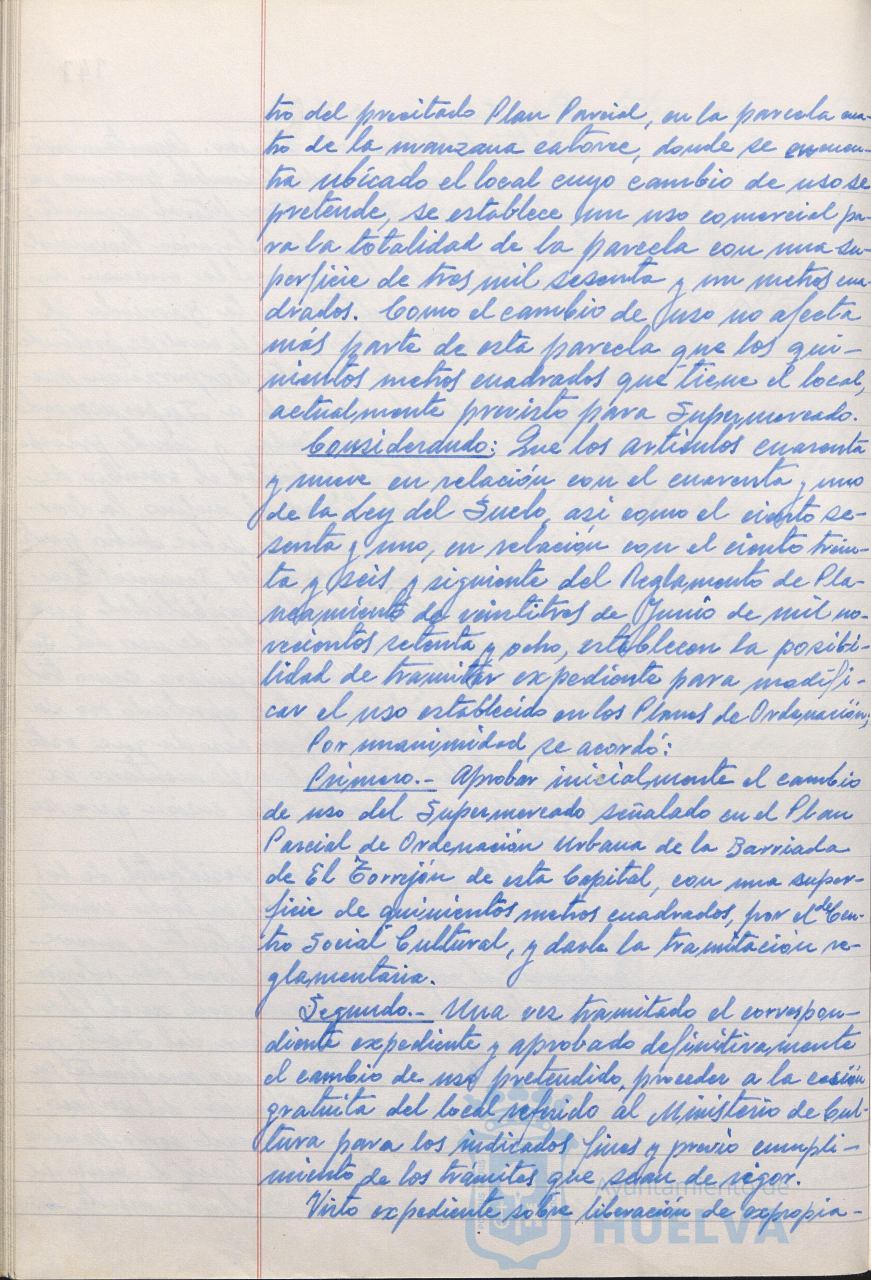 tro del precitado Plan Parcial, en la parcela cua-
tro de la manzana catorce, donde se encuen-
tra ubicado el local cuyo cambio de uso se
pretende, se establece un uso comercial pa-
ra la totalidad de la parcela con una su-
perficie de tres mil sesenta y un metros cua-
drados. Como el cambio de uso no afecta
más parte de esta parcela que los qui-
nientos metros cuadrados que tiene el local,
actualmente previsto para Supermercado.
Considerando: Que los artículos cuarenta
y nueve en relación con el cuarenta y uno
de la Ley del Suelo, así como el ciento se-
senta y uno, en relación con el ciento trein-
ta y seis, y siguiente del Reglamento de Pla-
neamiento de veintitres de Junio de mil no-
vecientos setenta y ocho, establecen la posibi-
lidad de tramitar expediente para modifi-
car el uso establecido en los Planes de Ordenación;
Por unanimidad se acordó:
Primero.- Aprobar inicialmente el cambio
de uso del Supermercado señalado en el Plan
Parcial de Ordenación Urbana de la Barriada
de El Torrejón de esta Capital, con una super-
ficie de quinientos metros cuadrados, por el de Cen-
tro Social Cultural, y darle la tramitación re-
glamentaria.
Segundo.- Una vez tramitado el correspon-
diente expediente y aprobado definitivamente
el cambio de uso pretendido, proceder a la cesión
gratuita del local referido al Ministerio de Cul-
tura para los indicados fines y previo cumpli-
miento de los trámites que sean de rigor.
Visto expediente sobre liberación de expropia-
Ayuntamiento de
HUELVA